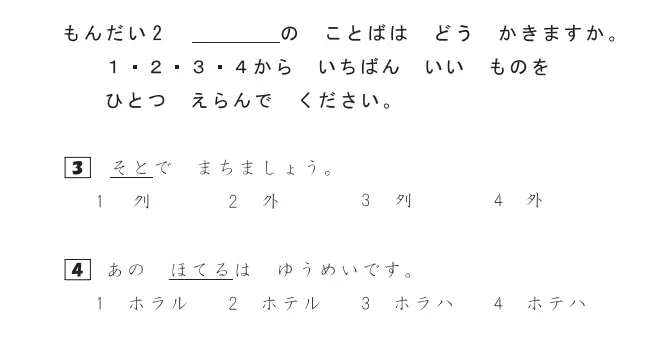 もんだい2　＿＿＿＿の　ことばは　どう　かきますか。
1・2・3・4から　いちばん　いい　ものを
ひとつ　えらんで　ください。
3　そとで　まちましょう。
1　列　2　外　3　列　4　外
4　あの　ほてるは　ゆうめいです。
1　ホラル　2　ホテル　3　ホラハ　4　ホテハ